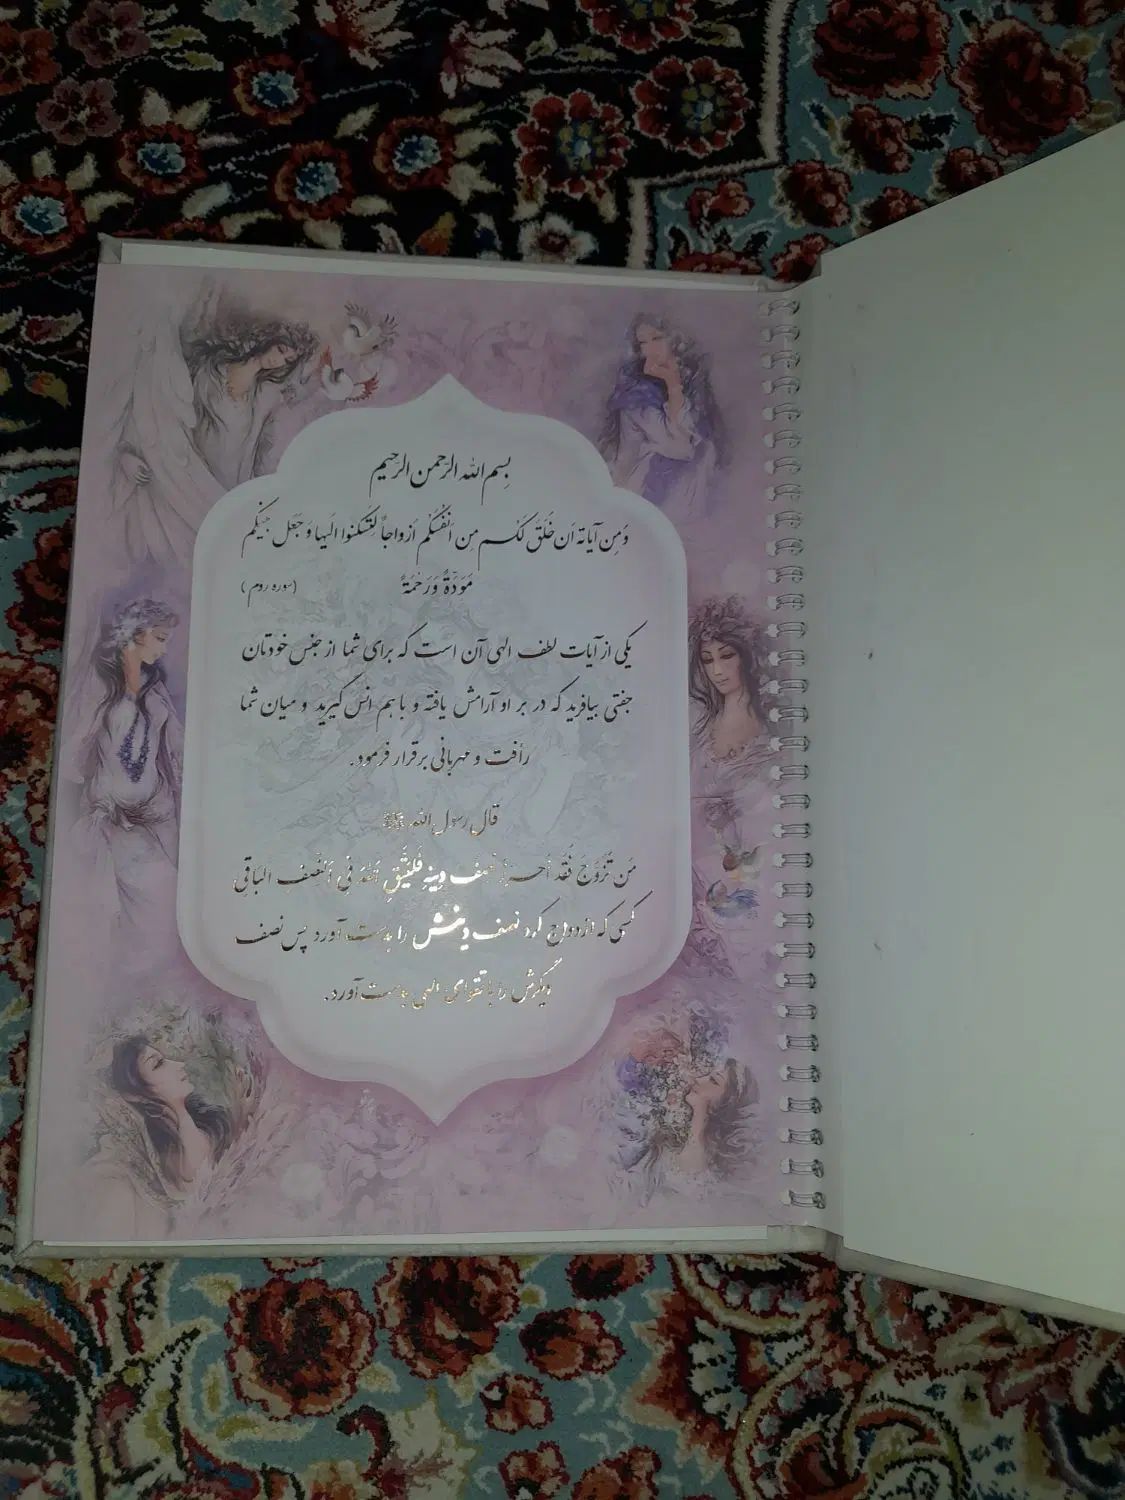 بِسم الله الرّحمن الرّحیم
وَمِن آیاتهِ اَن خَلَقَ لَکُم مِن اَنفُسُکُم اَزواجاً لِتَسکنوا اِلَیها وَ جَعَل بَینَکُم
مَوَدَّةً وَ رَحْمَةً (سوره روم)
یکی از آیات لطف الهی آن است که برای شما از جنس خودتان
جفتی بیافرید که در بر او آرامش یافته و با هم انس گیرید و میان شما
رأفت و مهربانی برقرار فرمود.
قال رسول الله ﷺ
مَن تَزَوَّجَ فَقَد اَحرَزَ نِصفَ دِینِهِ فَلیَتَّقِ اللهَ فی النِصفِ الباقی
کسی که ازدواج کرد نصف دینش را بدست آورد پس نصف
دیگرش را با تقوای الهی بدست آورد.